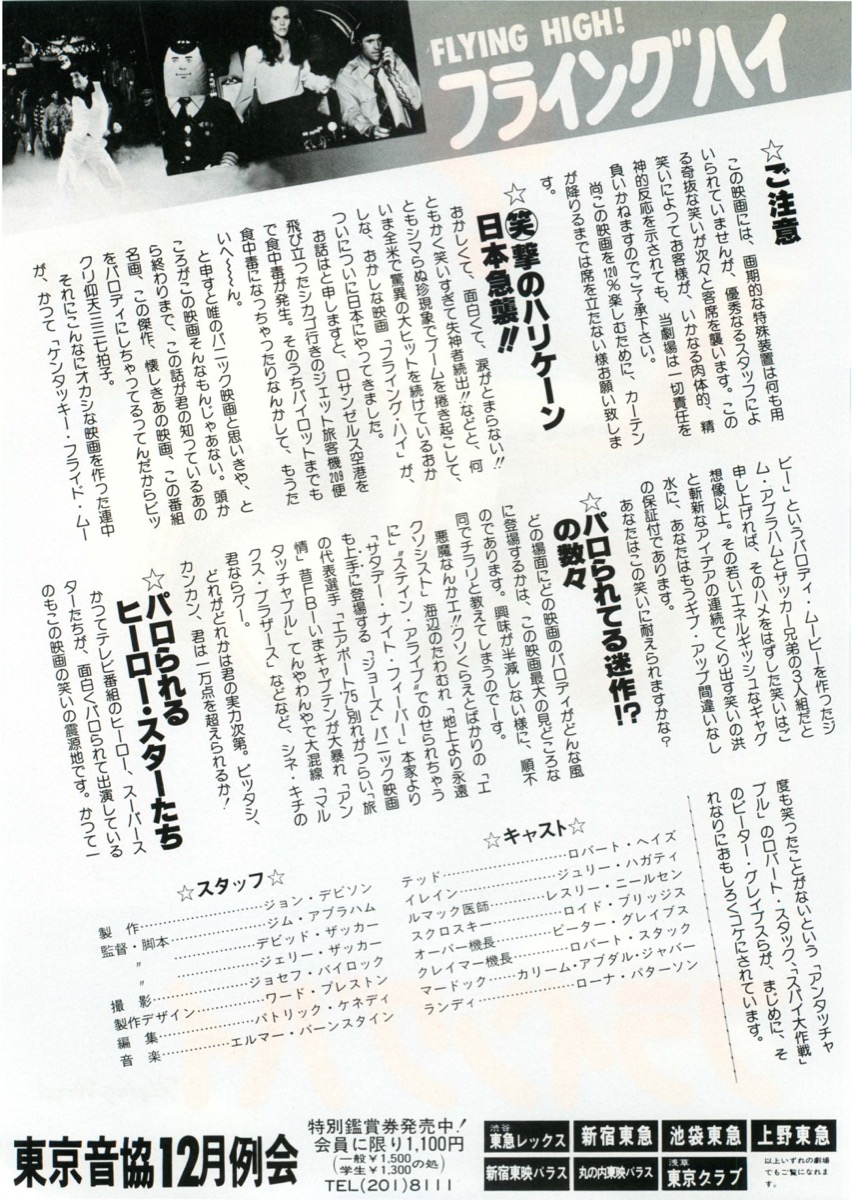 FLYING HIGH!
フライングハイ
☆ご注意
この映画には、画期的な特殊装置は何も用
いられていませんが、優秀なるスタッフによ
る奇抜な笑いが次々と客席を襲います。この
笑いによってお客様が、いかなる肉体的、精
神的反応を示されても、当劇場は一切責任を
負いかねますのでご了承下さい。
尚この映画を120%楽しむために、カーテン
が降りるまでは席を立たない様お願い致しま
す。
☆㊤撃のハリケーン
日本急襲!!
おかしくて、面白くて、涙がとまらない!!
ともかく笑いすぎて失神者続出!!などと、何
ともシマらぬ珍現象でブームを捲き起こして、
いま全米で驚異の大ヒットを続けているおか
しな、おかしな映画「フライング・ハイ」が、
ついについに日本にやってきました。
お話はと申しますと、ロサンゼルス空港を
飛び立ったシカゴ行きのジェット旅客機209便
で食中毒が発生。そのうちパイロットまでも
食中毒になっちゃったりなんかして、もうた
いへ〜〜ん。
と申すと唯のパニック映画と思いきや、と
ころがこの映画そんなもんじゃあない。頭か
ら終わりまで、この話が君の知っているあの
名画、この傑作、懐しきあの映画、この番組
をパロディにしちゃってるってんだからビッ
クリ仰天三三七拍子。
それにこんなにオカシな映画を作った連中
が、かつて「ケンタッキー・フライド・ムー
ビー」というパロディ・ムービーを作ったジ
ム・アブラハムとザッカー兄弟の3人組だと
申し上げれば、そのハメをはずした笑いはご
想像以上。その若いエネルギッシュなギャグ
と斬新なアイデアの連続でくり出す笑いの洪
水に、あなたはもうギブ・アップ間違いなし
の保証付であります。
あなたはこの笑いに耐えられますかな?
☆パロられてる迷作!?
の数々
どの場面にどの映画のパロディがどんな風
に登場するかは、この映画最大の見どころな
のであります。興味が半減しない様に、順不
同でチラリと教えてしまうのでーす。
悪魔なんかエ!!クソくらえとばかりの「エ
クソシスト」海辺のたわむれ「地上より永遠
に」〝スティン・アライブ〟でのせられちゃう
「サタデー・ナイト・フィーバー」本家より
も上手に登場する「ジョーズ」パニック映画
の代表選手「エアポート'75」別れがつらい「旅
情」昔FBIいまキャプテンが大暴れ「アン
タッチャブル」てんやわんやで大混線「マル
クス・ブラザース」などなど、シネ・キチの
君ならグー。
どれがどれかは君の実力次第。ピッタシ、
カンカン、君は一万点を超えられるか!
☆パロられる
ヒーロー・スターたち
かつてテレビ番組のヒーロー、スーパース
ターたちが、面白くパロられて出演している
のもこの映画の笑いの震源地です。かつて一
度も笑ったことがないという「アンタッチャ
ブル」のロバート・スタック、「スパイ大作戦」
のピーター・グレイブスらが、まじめに、そ
れなりにおもしろくコケにされています。
☆キャスト☆
テッド……ロバート・ヘイズ
イレイン……ジュリー・ハガティ
ルマック医師……レスリー・ニールセン
スクロスキー……ロイド・ブリッジス
オーバー機長……ピーター・グレイブス
クレイマー機長……ロバート・スタック
マードック……カリーム・アブダル・ジャバー
ランディ……ローナ・パターソン
☆スタッフ☆
製作……ジョン・デビソン
監督・脚本……ジム・アブラハム
〃……デビッド・ザッカー
〃……ジェリー・ザッカー
撮影……ジョセフ・バイロック
製作デザイン……ワード・プレストン
編集……パトリック・ケネディ
音楽……エルマー・バーンスタイン
東京音協12月例会
特別鑑賞券発売中!
会員に限り1,100円
(一般¥1,500 学生¥1,300の処)
TEL(201)8111
渋谷 東急レックス
新宿東急
池袋東急
上野東急
新宿東映パラス
丸の内東映パラス
浅草 東京クラブ
以上いずれの劇場
でもご覧になれま
す。